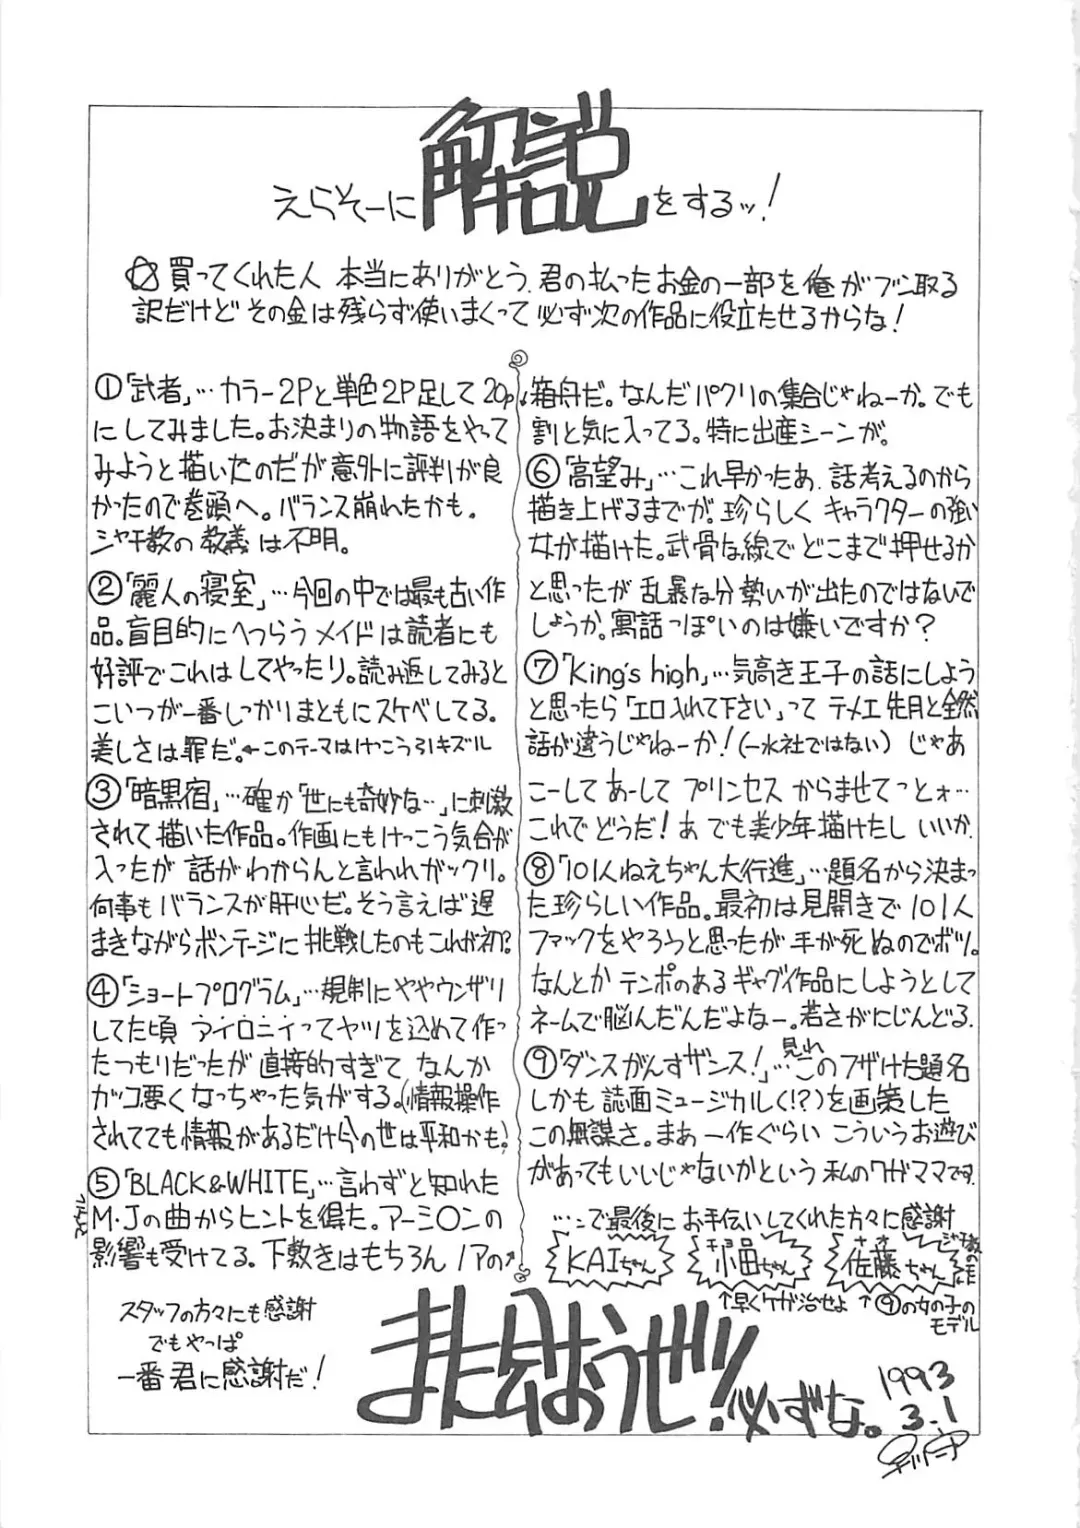 えらそーに解説をするッ!
☆買ってくれた人 本当にありがとう。君の払ったお金の一部を俺がブン取る
訳だけど その金は残らず使いまくって 必ず次の作品に役立たせるからな!
①「武者」…カラー2Pと単色2P足して20p
にしてみました。お決まりの物語をやって
みようと描いたのだが意外に評判が良
かったので巻頭へ。バランス崩れたかも。
シャチ教の教義は不明。
②「麗人の寝室」…今回の中では最も古い作
品。盲目的にへつらうメイドは読者にも
好評でこれはしてやったり。読み返してみると
こいつが一番しっかりまともにスケベしてる。
美しさは罪だ。←このテーマはけっこう引キズル
③「暗黒宿」…確か「世にも奇妙な…」に刺激
されて描いた作品。作画にもけっこう気合が
入ったが 話がわからんと言われガックリ。
何事もバランスが肝心だ。そう言えば遅
まきながらボンテージに挑戦したのもこれが初?
④「ショートプログラム」…規制にややウンザリ
してた頃 アイロニィってヤツを込めて作っ
たつもりだったが 直接的すぎて なんか
カッコ悪くなっちゃった気がする。(情報操作
されてても情報があるだけ今の世は平和かも)
⑤「BLACK&WHITE」…言わずと知れた
M・Jの曲からヒントを得た。アーミ○ンの
影響も受けてる。下敷きはもちろんノアの
↓箱舟だ。なんだパクリの集合じゃねーか。でも
割と気に入ってる。特に出産シーンが。
⑥「高望み」…これ早かったあ。話考えるのから
描き上げるまでが。珍らしく キャラクターの強い
女が描けた。武骨な線で どこまで押せるか
と思ったが 乱暴な分 勢いが出たのではないで
しょうか。寓話っぽいのは嫌いですか?
⑦「King's high」…気高き王子の話にしよう
と思ったら「エロ入れて下さい」って テメェ 先月と全然
話が違うじゃねーか!(一水社ではない) じゃあ
こーして あーして プリンセス からませてっとォ…
これで どうだ! あ でも美少年描けたし いいか。
⑧「101人ねえちゃん大行進」…題名から決まっ
た珍らしい作品。最初は見開きで 101人
ファックをやろうと思ったが 手が死ぬのでボツ。
なんとか テンポのある ギャグ作品にしようとして
ネームで脳んだんだよなー。若さがにじんどる。
⑨「ダンスがんすザンス!」…見れ このフザけた題名
しかも 誌面ミュージカル(!?)を画策した
この無謀さ。まあ 一作ぐらい こういうお遊び
があってもいいじゃないかという 私のワガママです。
…で最後に お手伝いしてくれた方々に感謝
KAIちゃん
小田ちゃん
佐藤ちゃん
↑早くケガ治せよ
↑⑨の女の子の
モデル
スタッフの方々にも感謝
でもやっぱ
一番 君に感謝だ!
また会おうぜッ!必ずな。
1993
3.1